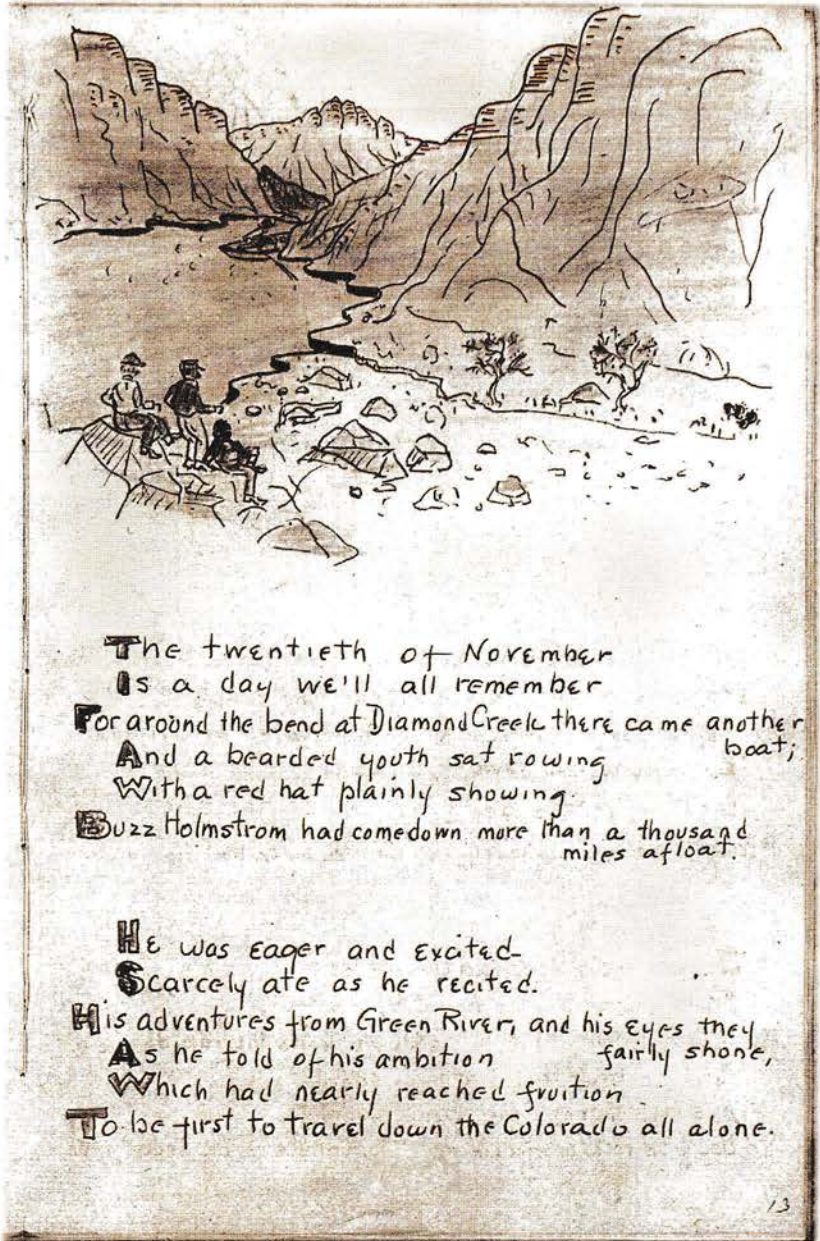 The twentieth of November
Is a day we'll all remember
For around the bend at Diamond Creek there came another
boat;
And a bearded youth sat rowing
With a red hat plainly showing.
Buzz Holmstrom had come down more than a thousand
miles afloat.
He was eager and excited-
Scarcely ate as he recited.
His adventures from Green River, and his eyes they
fairly shone,
As he told of his ambition
Which had nearly reached fruition
To be first to travel down the Colorado all alone.
13